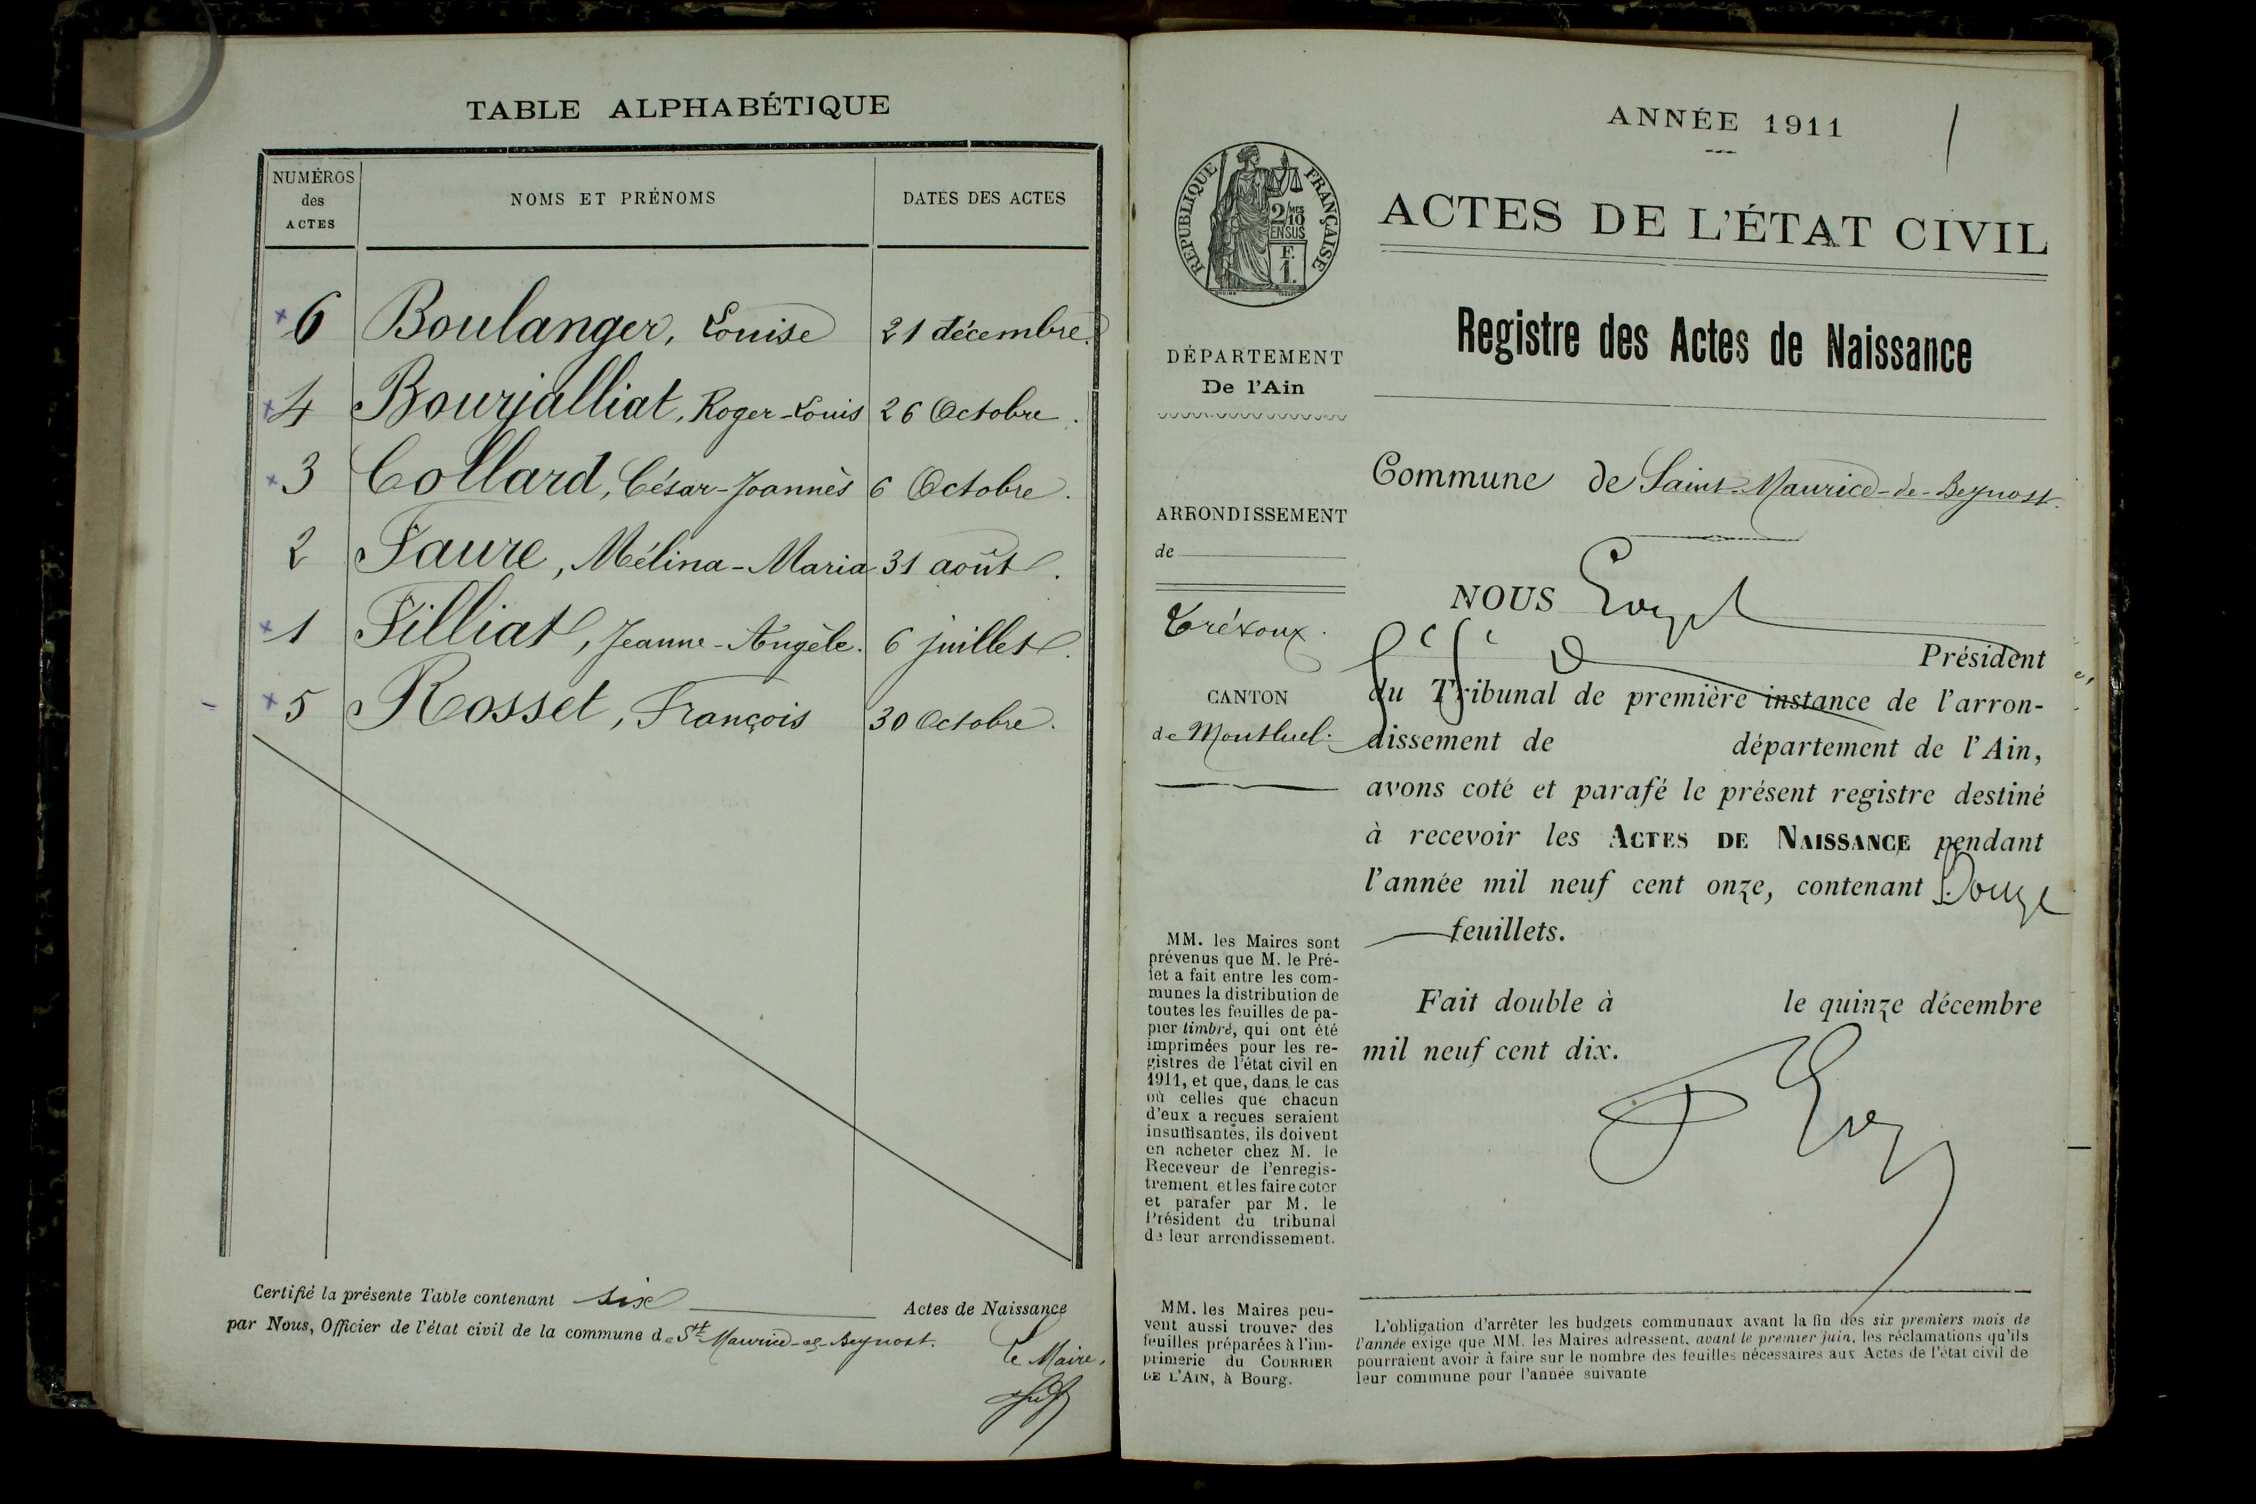 TABLE ALPHABÉTIQUE
NUMÉROS
des
ACTES
NOMS ET PRÉNOMS
DATES DES ACTES
6 Boulanger, Louise 21 décembre.
4 Bourjalliat, Roger-Louis 26 Octobre.
3 Collard, César-Joannès 6 Octobre.
2 Faure, Mélina-Maria 31 août.
1 Filliat, Jeanne-Angèle. 6 juillet.
5 Rosset, François 30 Octobre.
Certifié la présente Table contenant six Actes de Naissance
par Nous, Officier de l'état civil de la commune de St Maurice-de-Beynost.
Le Maire,
ANNÉE 1911
1
ACTES DE L'ÉTAT CIVIL
RÉPUBLIQUE FRANÇAISE
2/10 mes
EN SUS
F.
1.
DÉPARTEMENT
De l'Ain
ARRONDISSEMENT
de
Trévoux.
CANTON
de Montluel.
MM. les Maires sont
prévenus que M. le Pré-
fet a fait entre les com-
munes la distribution de
toutes les feuilles de pa-
pier timbré, qui ont été
imprimées pour les re-
gistres de l'état civil en
1911, et que, dans le cas
où celles que chacun
d'eux a reçues seraient
insuffisantes, ils doivent
en acheter chez M. le
Receveur de l'enregis-
trement et les faire coter
et parafer par M. le
Président du tribunal
de leur arrondissement.
MM. les Maires peu-
vent aussi trouver des
feuilles préparées à l'im-
primerie du COURRIER
DE L'AIN, à Bourg.
Registre des Actes de Naissance
Commune de Saint-Maurice-de-Beynost.
NOUS
Président
du Tribunal de première instance de l'arron-
dissement de département de l'Ain,
avons coté et parafé le présent registre destiné
à recevoir les ACTES DE NAISSANCE pendant
l'année mil neuf cent onze, contenant Douze
feuillets.
Fait double à le quinze décembre
mil neuf cent dix.
L'obligation d'arrêter les budgets communaux avant la fin des six premiers mois de
l'année exige que MM. les Maires adressent, avant le premier juin, les réclamations qu'ils
pourraient avoir à faire sur le nombre des feuilles nécessaires aux Actes de l'état civil de
leur commune pour l'année suivante